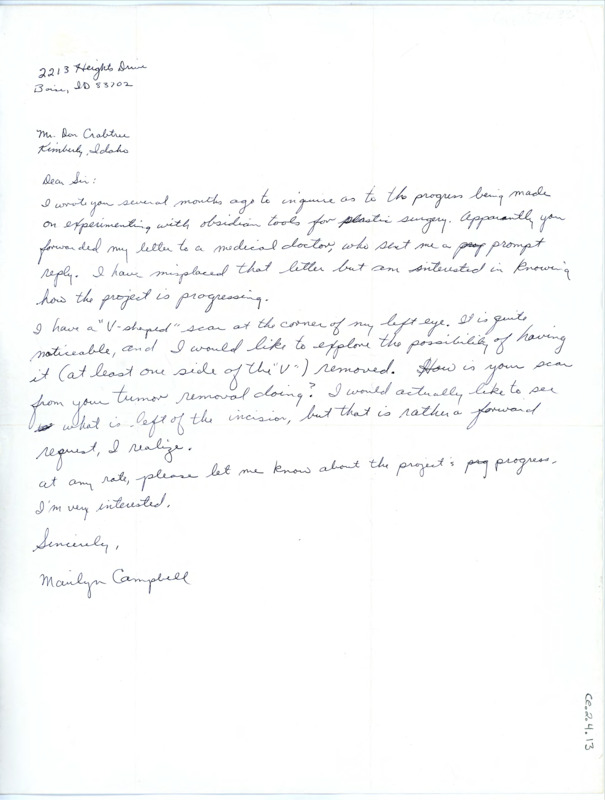 2213 Heights Drive
Boise, ID 83702
Mr. Don Crabtree
Kimberly, Idaho
Dear Sir:
I wrote you several months ago to inquire as to the progress being made
on experimenting with obsidian tools for plastic surgery. Apparently you
forwarded my letter to a medical doctor, who sent me a prog prompt
reply. I have misplaced that letter but am interested in knowing
how the project is progressing.
I have a "V-shaped" scar at the corner of my left eye. It is quite
noticeable, and I would like to explore the possibility of having
it (at least one side of the "V") removed. How is your scar
from your tumor removal doing? I would actually like to see
what is left of the incision, but that is rather a forward
request, I realize.
At any rate, please let me know about the project's prog progress.
I'm very interested.
Sincerely,
Marilyn Campbell
Ce.2.4.13